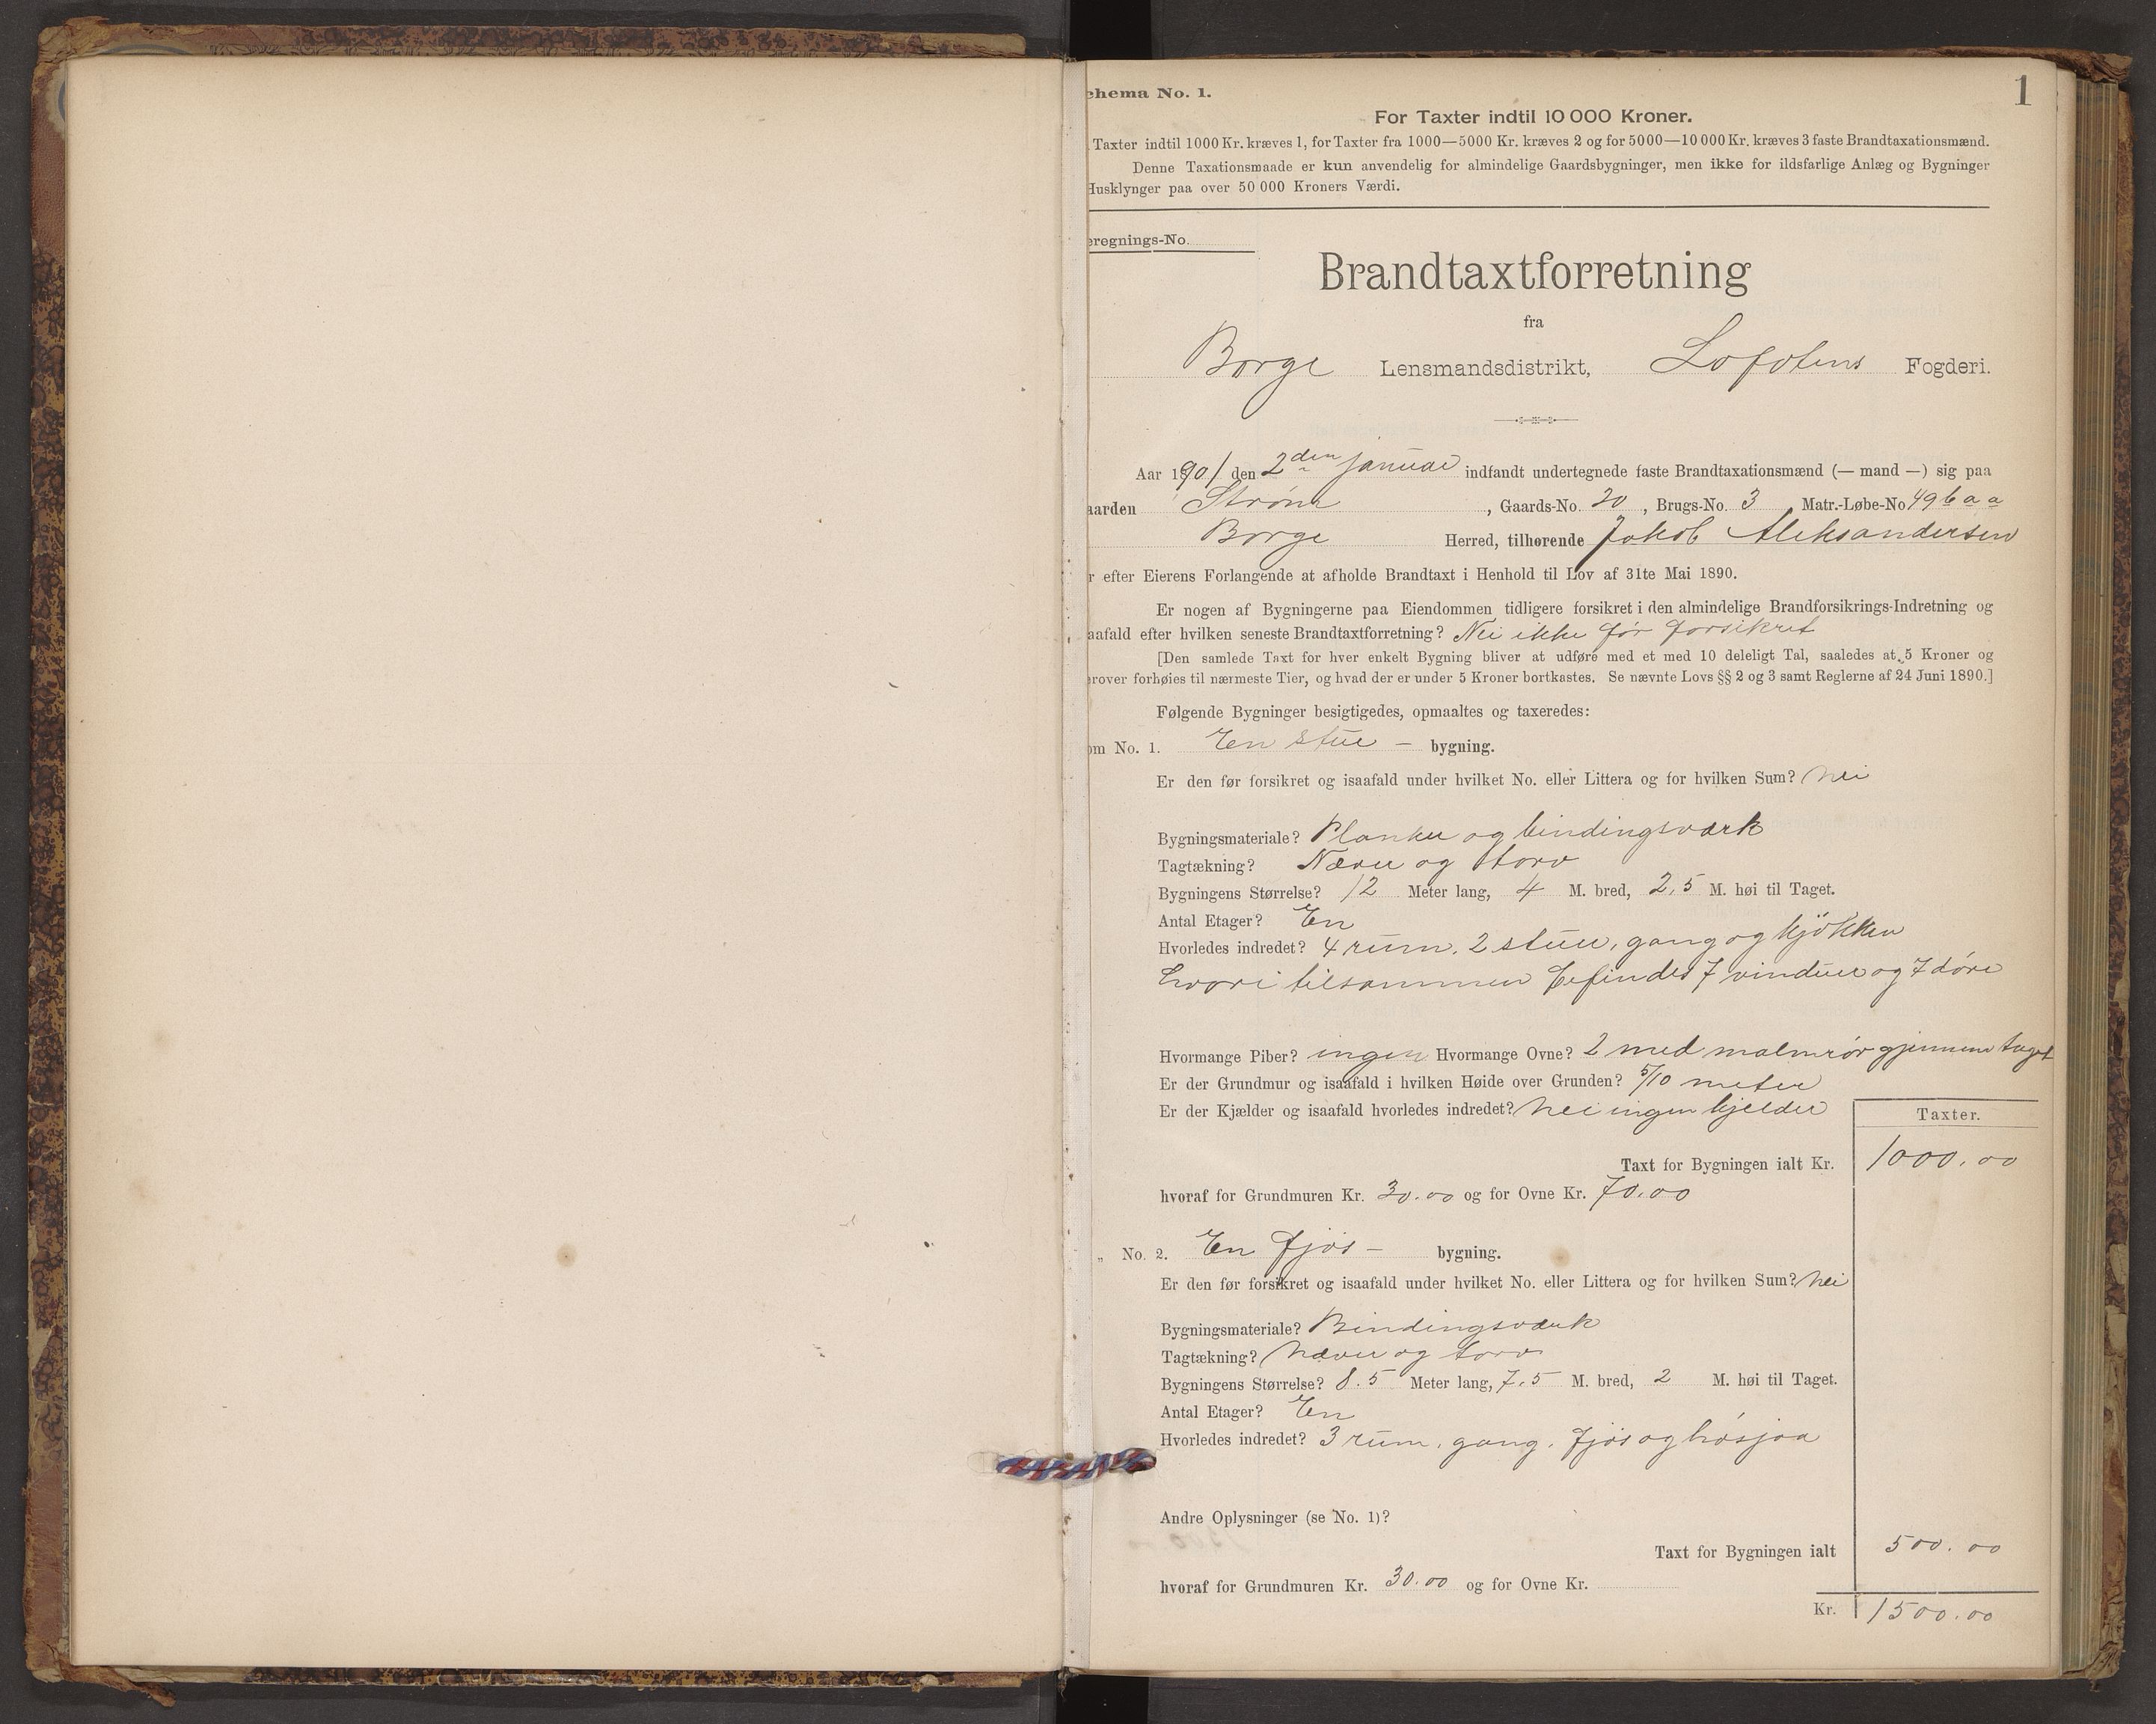 1
chema No. 1.
For Taxter indtil 10 000 Kroner.
Taxter indtil 1000 Kr. kræves 1, for Taxter fra 1000—5000 Kr. kræves 2 og for 5000—10 000 Kr. kræves 3 faste Brandtaxationsmænd.
Denne Taxationsmaade er kun anvendelig for almindelige Gaardsbygninger, men ikke for ildsfarlige Anlæg og Bygninger
Husklynger paa over 50 000 Kroners Værdi.
eregnings-No.
Brandtaxtforretning
fra
Borge Lensmandsdistrikt, Lofotens Fogderi.
Aar 1901 den 2den januar indfandt undertegnede faste Brandtaxationsmænd (— mand —) sig paa
aarden Strøm, Gaards-No. 20, Brugs-No. 3 Matr.-Løbe-No 49 b a a
Borge Herred, tilhørende Jakob Aleksandersen
r efter Eierens Forlangende at afholde Brandtaxt i Henhold til Lov af 31te Mai 1890.
Er nogen af Bygningerne paa Eiendommen tidligere forsikret i den almindelige Brandforsikrings-Indretning og
aafald efter hvilken seneste Brandtaxtforretning? Nei ikke før forsikret
[Den samlede Taxt for hver enkelt Bygning bliver at udføre med et med 10 deleligt Tal, saaledes at 5 Kroner og
erover forhøies til nærmeste Tier, og hvad der er under 5 Kroner bortkastes. Se nævnte Lovs §§ 2 og 3 samt Reglerne af 24 Juni 1890.]
Følgende Bygninger besigtigedes, opmaaltes og taxeredes:
om No. 1. En stue - bygning.
Er den før forsikret og isaafald under hvilket No. eller Littera og for hvilken Sum? nei
Bygningsmateriale? Planker og bindingsværk
Tagtækning? Næver og torv
Bygningens Størrelse? 12 Meter lang, 4 M. bred, 2,5 M. høi til Taget.
Antal Etager? En
Hvorledes indredet? 4 rum, 2 stuer, gang og kjøkken
hvori tilsammen befindes 7 vinduer og 7 døre
Hvormange Piber? ingen Hvormange Ovne? 2 med malmrør gjennem taget
Er der Grundmur og isaafald i hvilken Høide over Grunden? 5/10 meter
Er der Kjælder og isaafald hvorledes indredet? Nei ingen kjelder
Taxter.
Taxt for Bygningen ialt Kr. 1000.00
hvoraf for Grundmuren Kr. 30.00 og for Ovne Kr. 70.00
„ No. 2. En fjøs - bygning.
Er den før forsikret og isaafald under hvilket No. eller Littera og for hvilken Sum? nei
Bygningsmateriale? Bindingsværk
Tagtækning? Næver og torv
Bygningens Størrelse? 8.5 Meter lang, 7,5 M. bred, 2 M. høi til Taget.
Antal Etager? En
Hvorledes indredet? 3 rum, gang, fjøs og høsjaa
Andre Oplysninger (se No. 1)?
Taxt for Bygningen ialt 500.00
hvoraf for Grundmuren Kr. 30.00 og for Ovne Kr.
Kr. 1500.00